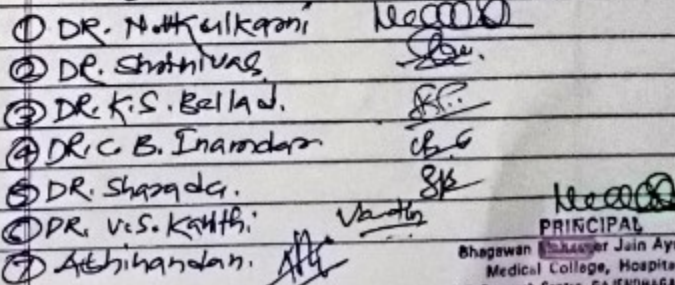 ① DR. N.H Kulkarni
② DR. Shrinivas
③ DR. K.S. Bellad.
④ DR. C. B. Inamdar
⑤ DR. Sharada.
⑥ DR. V.S. Kanthi
⑦ Abhinandan.
PRINCIPAL
Bhagawan Mahaveer Jain Ayu
Medical College, Hospita